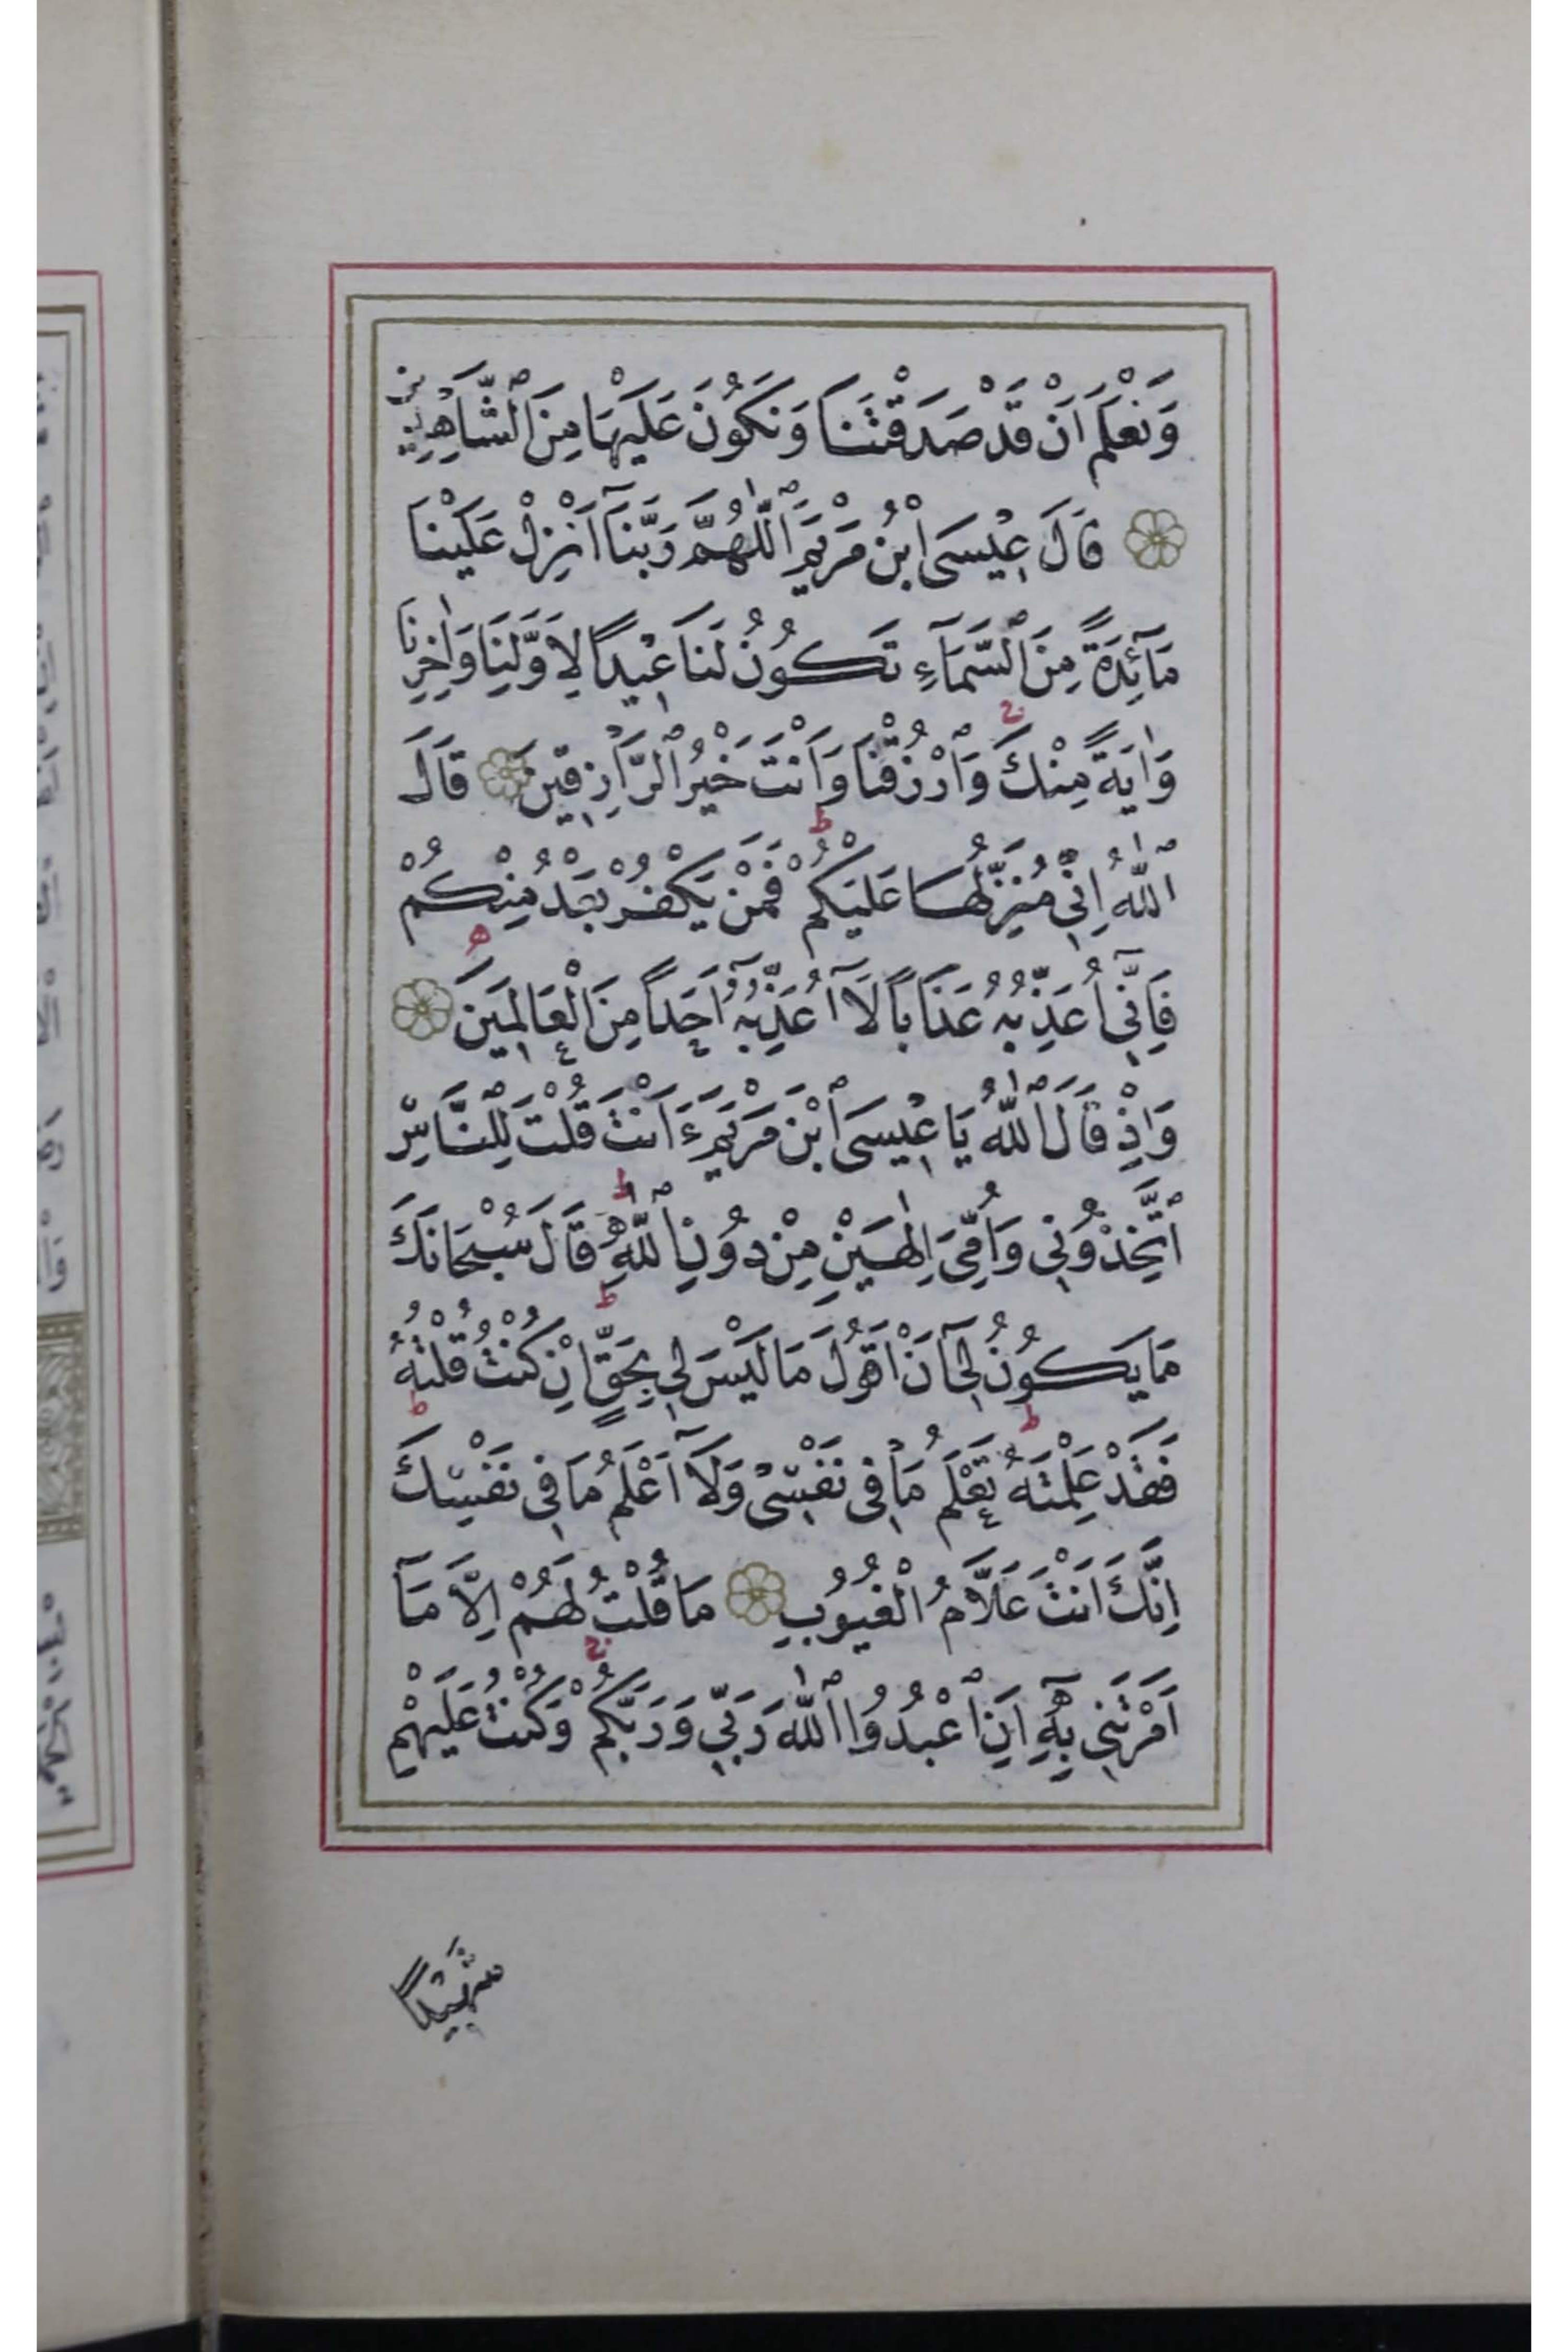 وَنَعْلَمَ اَنْ قَدْ صَدَقْتَنَا وَنَكُونَ عَلَيْهَا مِنَ ٱلشَّاهِدِينَ
قَالَ عِيْسَى ٱبْنُ مَرْيَمَ ٱللّٰهُمَّ رَبَّنَآ اَنْزِلْ عَلَيْنَا
مَآئِدَةً مِنَ ٱلسَّمَآءِ تَكُونُ لَنَا عِيْدًا لِاَوَّلِنَا وَاٰخِرِنَا
وَاٰيَةً مِنْكَ ۚ وَٱرْزُقْنَا وَاَنْتَ خَيْرُ ٱلرَّازِقِينَ قَالَ
ٱللّٰهُ اِنِّي مُنَزِّلُهَا عَلَيْكُمْ ط فَمَنْ يَكْفُرْ بَعْدُ مِنْكُمْ
فَاِنِّيٓ اُعَذِّبُهُ عَذَابًا لَآ اُعَذِّبُهُٓ اَحَدًا مِنَ ٱلْعَالَمِينَ ه
وَاِذْ قَالَ ٱللّٰهُ يَا عِيْسَى ٱبْنَ مَرْيَمَ ءَاَنْتَ قُلْتَ لِلنَّاسِ
ٱتَّخِذُونِي وَاُمِّيَ اِلٰهَيْنِ مِنْ دُونِ ٱللّٰهِ ط قَالَ سُبْحَانَكَ
مَا يَكُونُ لِيٓ اَنْ اَقُولَ مَا لَيْسَ لِي بِحَقٍّ ط اِنْ كُنْتُ قُلْتُهُ
فَقَدْ عَلِمْتَهُ ط تَعْلَمُ مَا فِي نَفْسِي وَلَآ اَعْلَمُ مَا فِي نَفْسِكَ ط
اِنَّكَ اَنْتَ عَلَّامُ الْغُيُوبِ مَا قُلْتُ لَهُمْ اِلَّا مَآ
اَمَرْتَنِي بِهِٓ اَنِ ٱعْبُدُوا ٱللّٰهَ رَبِّي وَرَبَّكُمْ ۚ وَكُنْتُ عَلَيْهِمْ
شَهِيْدًا